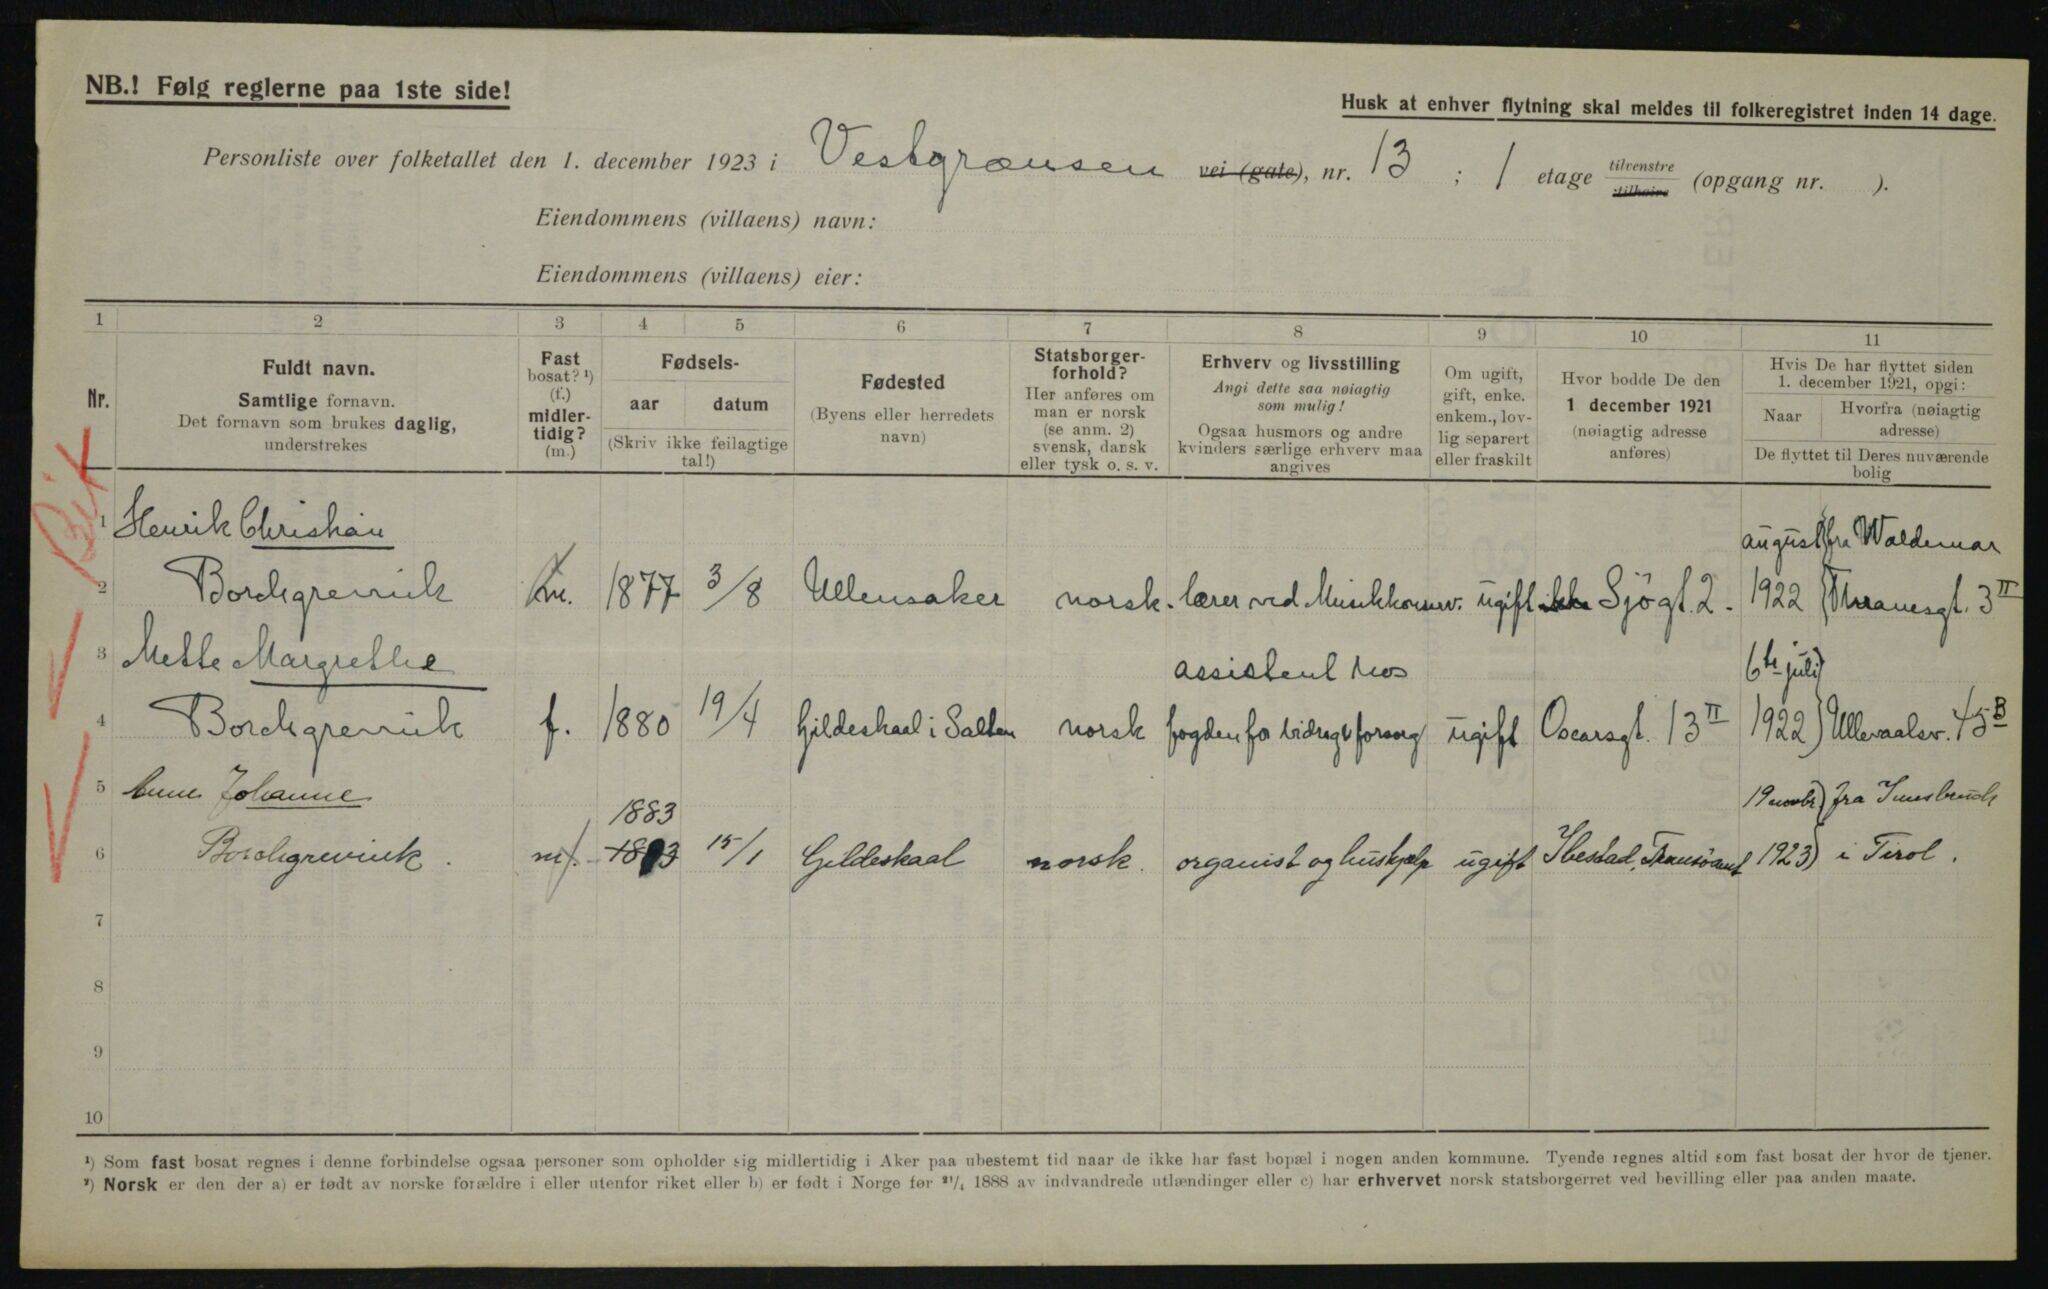 NB.! Følg reglerne paa 1ste side!
Husk at enhver flytning skal meldes til folkeregistret inden 14 dage.
Personliste over folketallet den 1. december 1923 i Vestgrænsen vei (gate), nr. 13 ; 1 etage tilvenstre tilhøire (opgang nr. ).
Eiendommens (villaens) navn:
Eiendommens (villaens) eier:
1 2 3 4 5 6 7 8 9 10 11
Nr.
Fuldt navn.
Samtlige fornavn.
Det fornavn som brukes daglig,
understrekes
Fast
bosat? ¹)
(f.)
midler-
tidig?
(m.)
Fødsels-
aar datum
(Skriv ikke feilagtige
tal!)
Fødested
(Byens eller herredets
navn)
Statsborger-
forhold?
Her anføres om
man er norsk
(se anm. 2)
svensk, dansk
eller tysk o. s. v.
Erhverv og livsstilling
Angi dette saa nøiagtig
som mulig!
Ogsaa husmors og andre
kvinders særlige erhverv maa
angives
Om ugift,
gift, enke.
enkem., lov-
lig separert
eller fraskilt
Hvor bodde De den
1 december 1921
(nøiagtig adresse
anføres)
Hvis De har flyttet siden
1. december 1921, opgi:
Naar
Hvorfra (nøiagtig
adresse)
De flyttet til Deres nuværende
bolig
1 Henrik Christian august fra Waldemar
2 Borchgrevink m. 1877 3/8 Ullensaker norsk. lærer ved Musikkonserv. ugift Sjögt. 2. 1922 Thranesgt. 3 II
3 Mette Margrethe assistent hos 6te juli
4 Borchgrevink f. 1880 19/4 Gildeskaal i Salten norsk fogden for bidragsforsorg ugift Oscarsgt. 13 II 1922 Ullevaalsv. 45 B
5 Anne Johanne 1883 19 novbr fra Innsbruck
6 Borchgrevink. m. 1893 15/1 Gildeskaal norsk. organist og hushjælp ugift Ibestad, Tromsöamt 1923 i Tirol.
7
8
9
10
¹) Som fast bosat regnes i denne forbindelse ogsaa personer som opholder sig midlertidig i Aker paa ubestemt tid naar de ikke har fast bopæl i nogen anden kommune. Tyende regnes altid som fast bosat der hvor de tjener.
²) Norsk er den der a) er født av norske forældre i eller utenfor riket eller b) er født i Norge før ²¹/₄ 1888 av indvandrede utlændinger eller c) har erhvervet norsk statsborgerret ved bevilling eller paa anden maate.